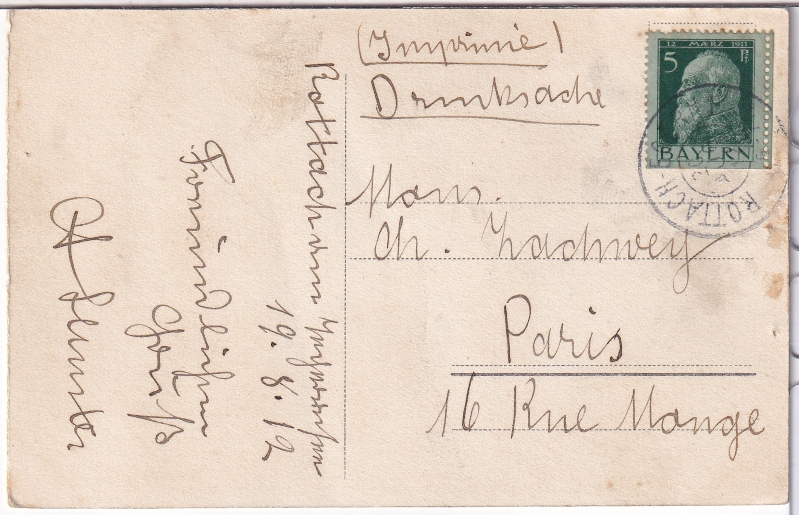 (Imprimé)
Drucksache
12 MÄRZ 1911
5 Pf
BAYERN
ROTTACH
Mons.
Ch. Zachwey
Paris
16 Rue Monge
Rottach am Tegernsee
19. 8. 12
Freundlichen
Gruß